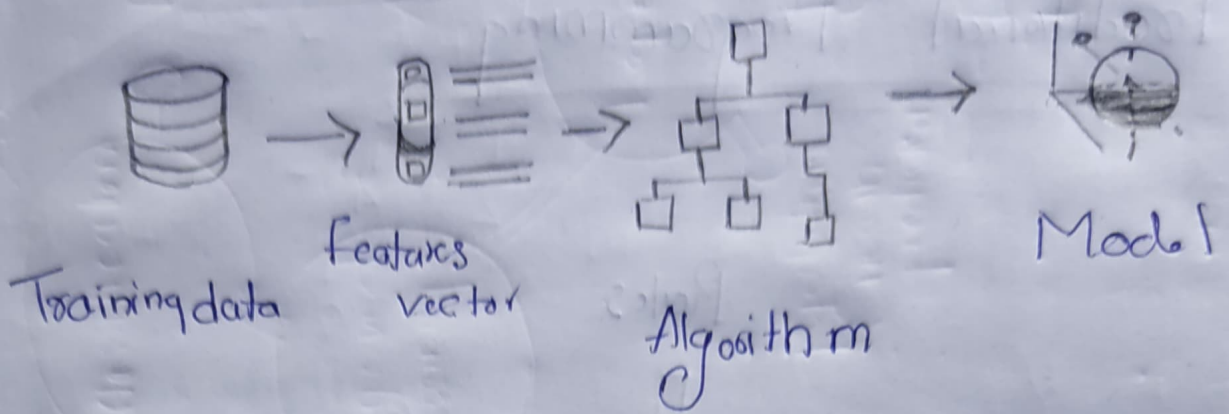 Training data
features
vector
Algorithm
Model